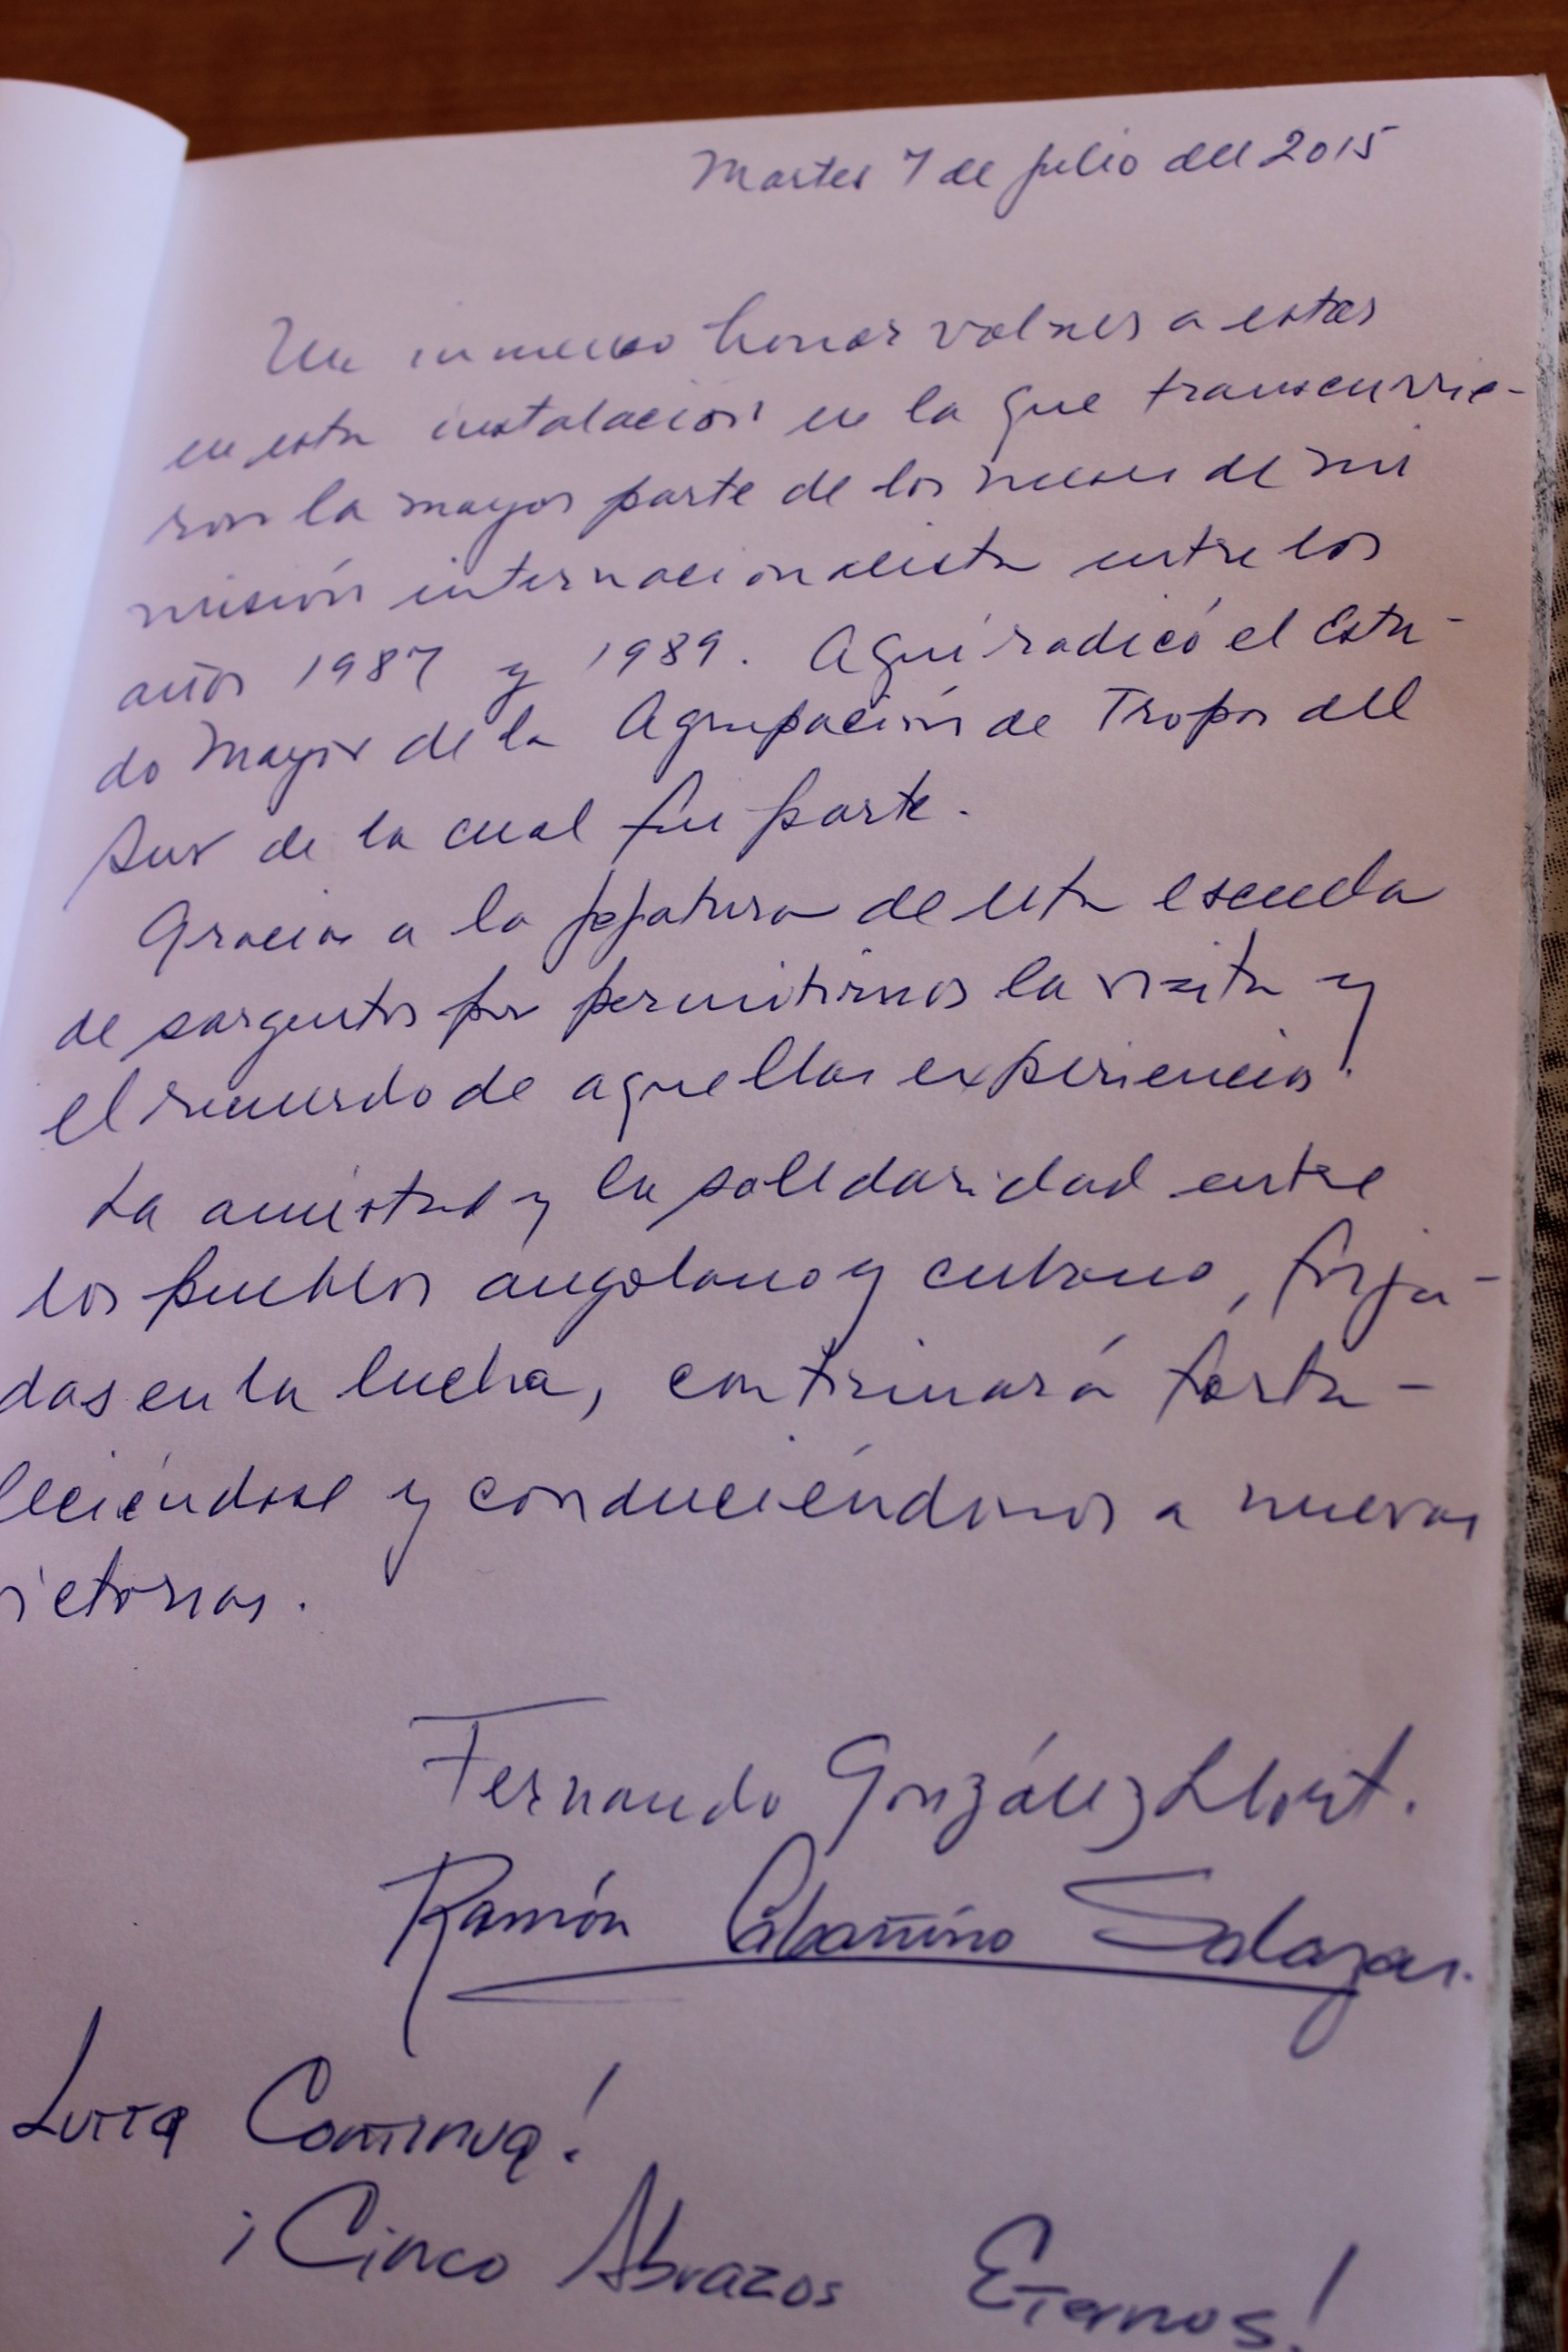 Martes 7 de julio del 2015
Un inmenso honor volver a estar
en esta instalación en la que transcurrie-
ron la mayor parte de los meses de mi
misión internacionalista entre los
años 1987 y 1989. Aquí radicó el Esta-
do Mayor de la Agrupación de Tropas del
Sur de la cual fui parte.
Gracias a la jefatura de esta escuela
de sargentos por permitirnos la visita y
el recuerdo de aquellas experiencias.
La amistad y la solidaridad entre
los pueblos angolano y cubano, forja-
das en la lucha, continuará forta-
leciéndose y conduciéndonos a nuevas
ictorias.
Fernando González Llort.
Ramón Labañino Salazar.
Lutta Continua!
¡Cinco Abrazos Eternos!